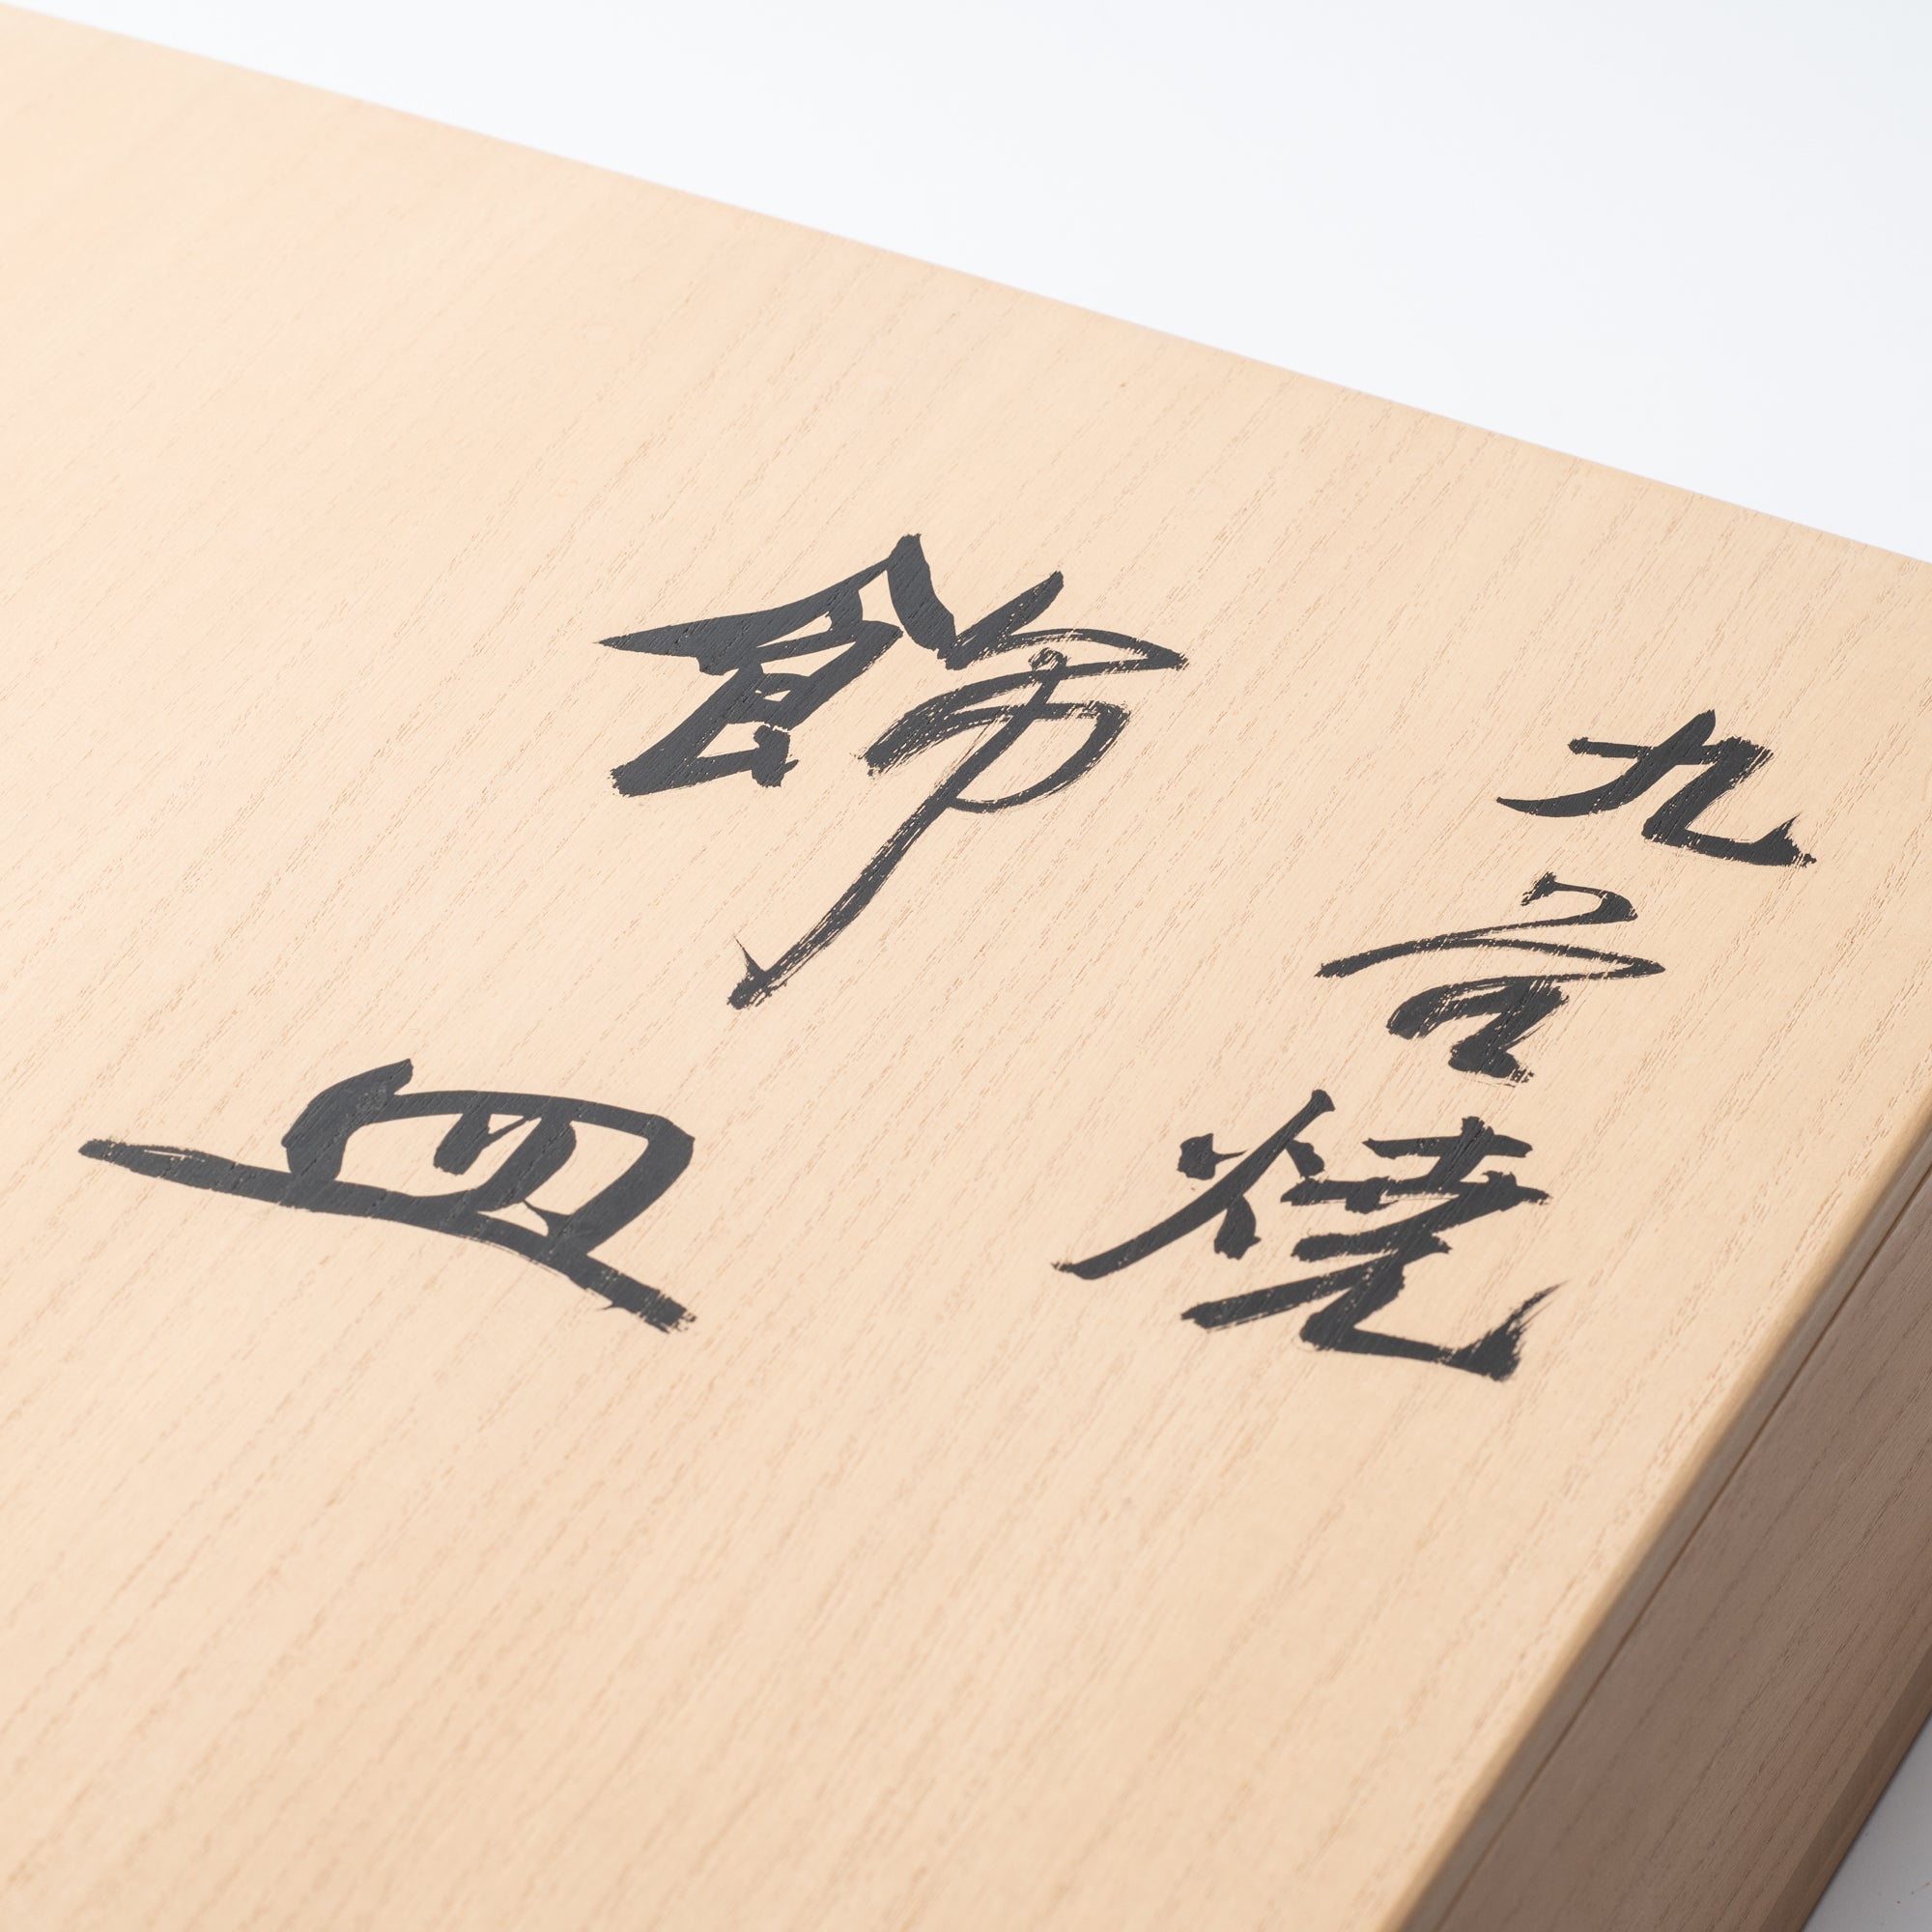 九谷焼
飾皿